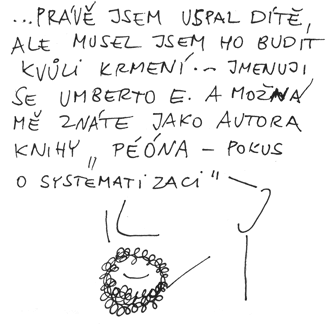 ...PRÁVĚ JSEM USPAL DÍTĚ,
ALE MUSEL JSEM HO BUDIT
KVŮLI KRMENÍ... JMENUJI
SE UMBERTO E. A MOŽNÁ
MĚ ZNÁTE JAKO AUTORA
KNIHY „PÉÓNA – POKUS
O SYSTÉMATIZACI"